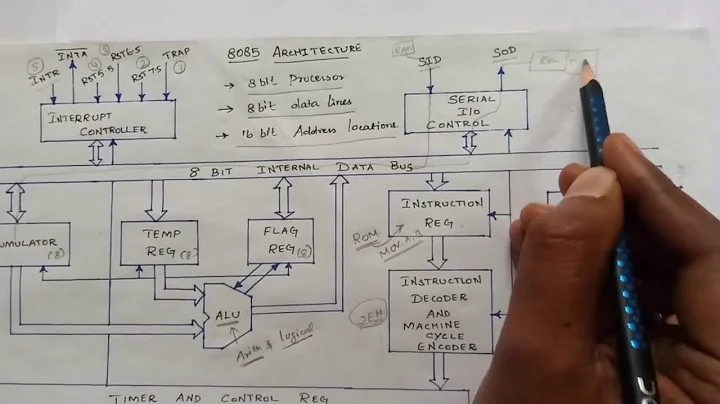 INTA
8085 ARCHITECTURE
→ 8bit Processor
→ 8bit data lines
→ 16 bit Address locations
⑤ INTR
④ RST5.5
③ RST6.5
② RST7.5
TRAP ①
RAM
SID
SOD
INTERRUPT
CONTROLLER
SERIAL
I/O
CONTROL
8 BIT INTERNAL DATA BUS
UMULATOR
(8)
TEMP
REG (8)
FLAG
REG (8)
INSTRUCTION
REG.
ROM
MOV A,B
ALU
Arith & logical
INSTRUCTION
DECODER
AND
MACHINE
CYCLE
ENCODER
TIMER AND CONTROL REG